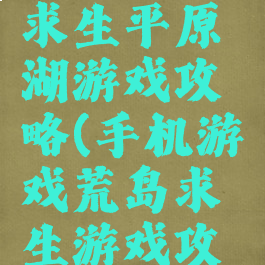 求生平原
湖游戏攻
略(手机游
戏荒岛求
生游戏攻